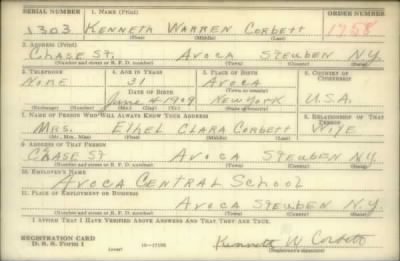 SERIAL NUMBER 1. NAME (Print) ORDER NUMBER
1303 KENNETH WARREN CORBETT 1758
(First) (Middle) (Last)
2. ADDRESS (Print)
CHASE ST. AVOCA STEUBEN N.Y.
(Number and street or R. F. D. number) (Town) (County) (State)
3. TELEPHONE 4. AGE IN YEARS 5. PLACE OF BIRTH 6. COUNTRY OF CITIZENSHIP
NONE 31 AVOCA
DATE OF BIRTH (Town or county)
June 4 1909 NEW YORK U.S.A.
(Exchange) (Number) (Mo.) (Day) (Yr.) (State or country)
7. NAME OF PERSON WHO WILL ALWAYS KNOW YOUR ADDRESS 8. RELATIONSHIP OF THAT PERSON
MRS. ETHEL CLARA CORBETT WIFE
(Mr., Mrs., Miss) (First) (Middle) (Last)
9. ADDRESS OF THAT PERSON
CHASE ST AVOCA STEUBEN N.Y.
(Number and street or R. F. D. number) (Town) (County) (State)
10. EMPLOYER'S NAME
AVOCA CENTRAL SCHOOL
11. PLACE OF EMPLOYMENT OR BUSINESS
AVOCA STEUBEN N.Y.
(Number and street or R. F. D. number) (Town) (County) (State)
I AFFIRM THAT I HAVE VERIFIED ABOVE ANSWERS AND THAT THEY ARE TRUE.
REGISTRATION CARD
D. S. S. Form 1 (over) 16—17105 Kenneth W Corbett
(Registrant's signature)